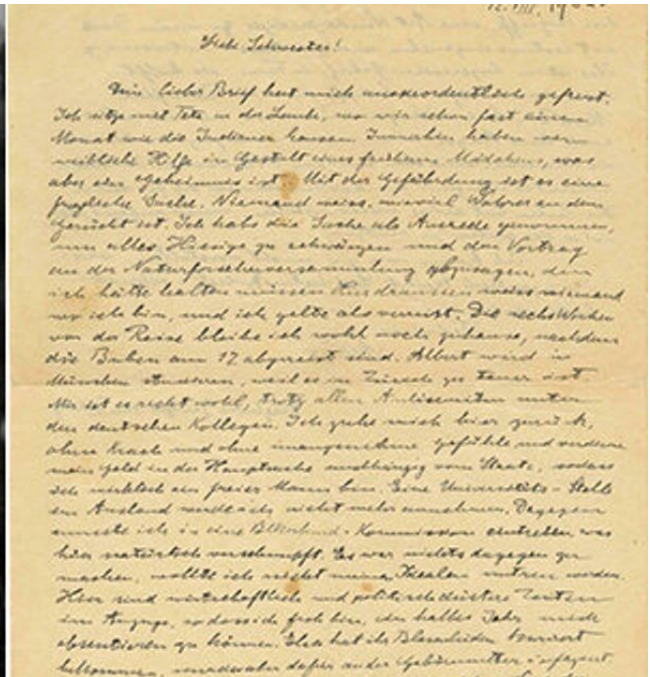 12. VIII. 19
Liebe Schwester!
Dein lieber Brief hat mich ausserordentlich gefreut.
Ich sitze mit Tete in der Laube, wo wir schon fast einen
Monat wie die Indianer hausen. Immerhin haben wir
weibliche Hilfe in Gestalt eines früheren Mädchens, was
aber ein Geheimnis ist. Mit der Gefährdung ist es eine
fragliche Sache. Niemand weiss, wieviel Wahres an dem
Gerücht ist. Ich habe die Sache als Ausrede genommen,
um alles Hiesige zu schwänzen und den Vortrag
an der Naturforscherversammlung abzusagen, den
ich hätte halten müssen. Hier draussen weiss niemand
wo ich bin, und ich gelte als verreist. Die sechs Wochen
vor der Reise bleibe ich wohl noch zuhause, nachdem
die Buben am 17 abgereist sind. Albert wird in
München studieren, weil es in Zürich zu teuer ist.
Mir ist es recht wohl, trotz allen Antisemiten unter
den deutschen Kollegen. Ich ziehe mich hier zurück,
ohne Krach und ohne unangenehme Gefühle und verdiene
mein Geld in der Hauptsache unabhängig vom Staate, sodass
ich wirklich ein freier Mann bin. Eine Universitäts-Stelle
im Ausland werde ich nicht mehr annehmen. Dagegen
musste ich in eine Völkerbund-Kommission eintreten was
hier natürlich verschnupft. Es war nichts dagegen zu
machen, wollte ich nicht meinen Idealen untreu werden.
Hier sind wirtschaftlich und politisch düstere Zeiten
im Anzuge, sodass ich froh bin, ein halbes Jahr mich
absentieren zu können. Ilse hat ihr Blasenleiden
bekommen, wurde aber dafür an der Gebärmutter infiziert